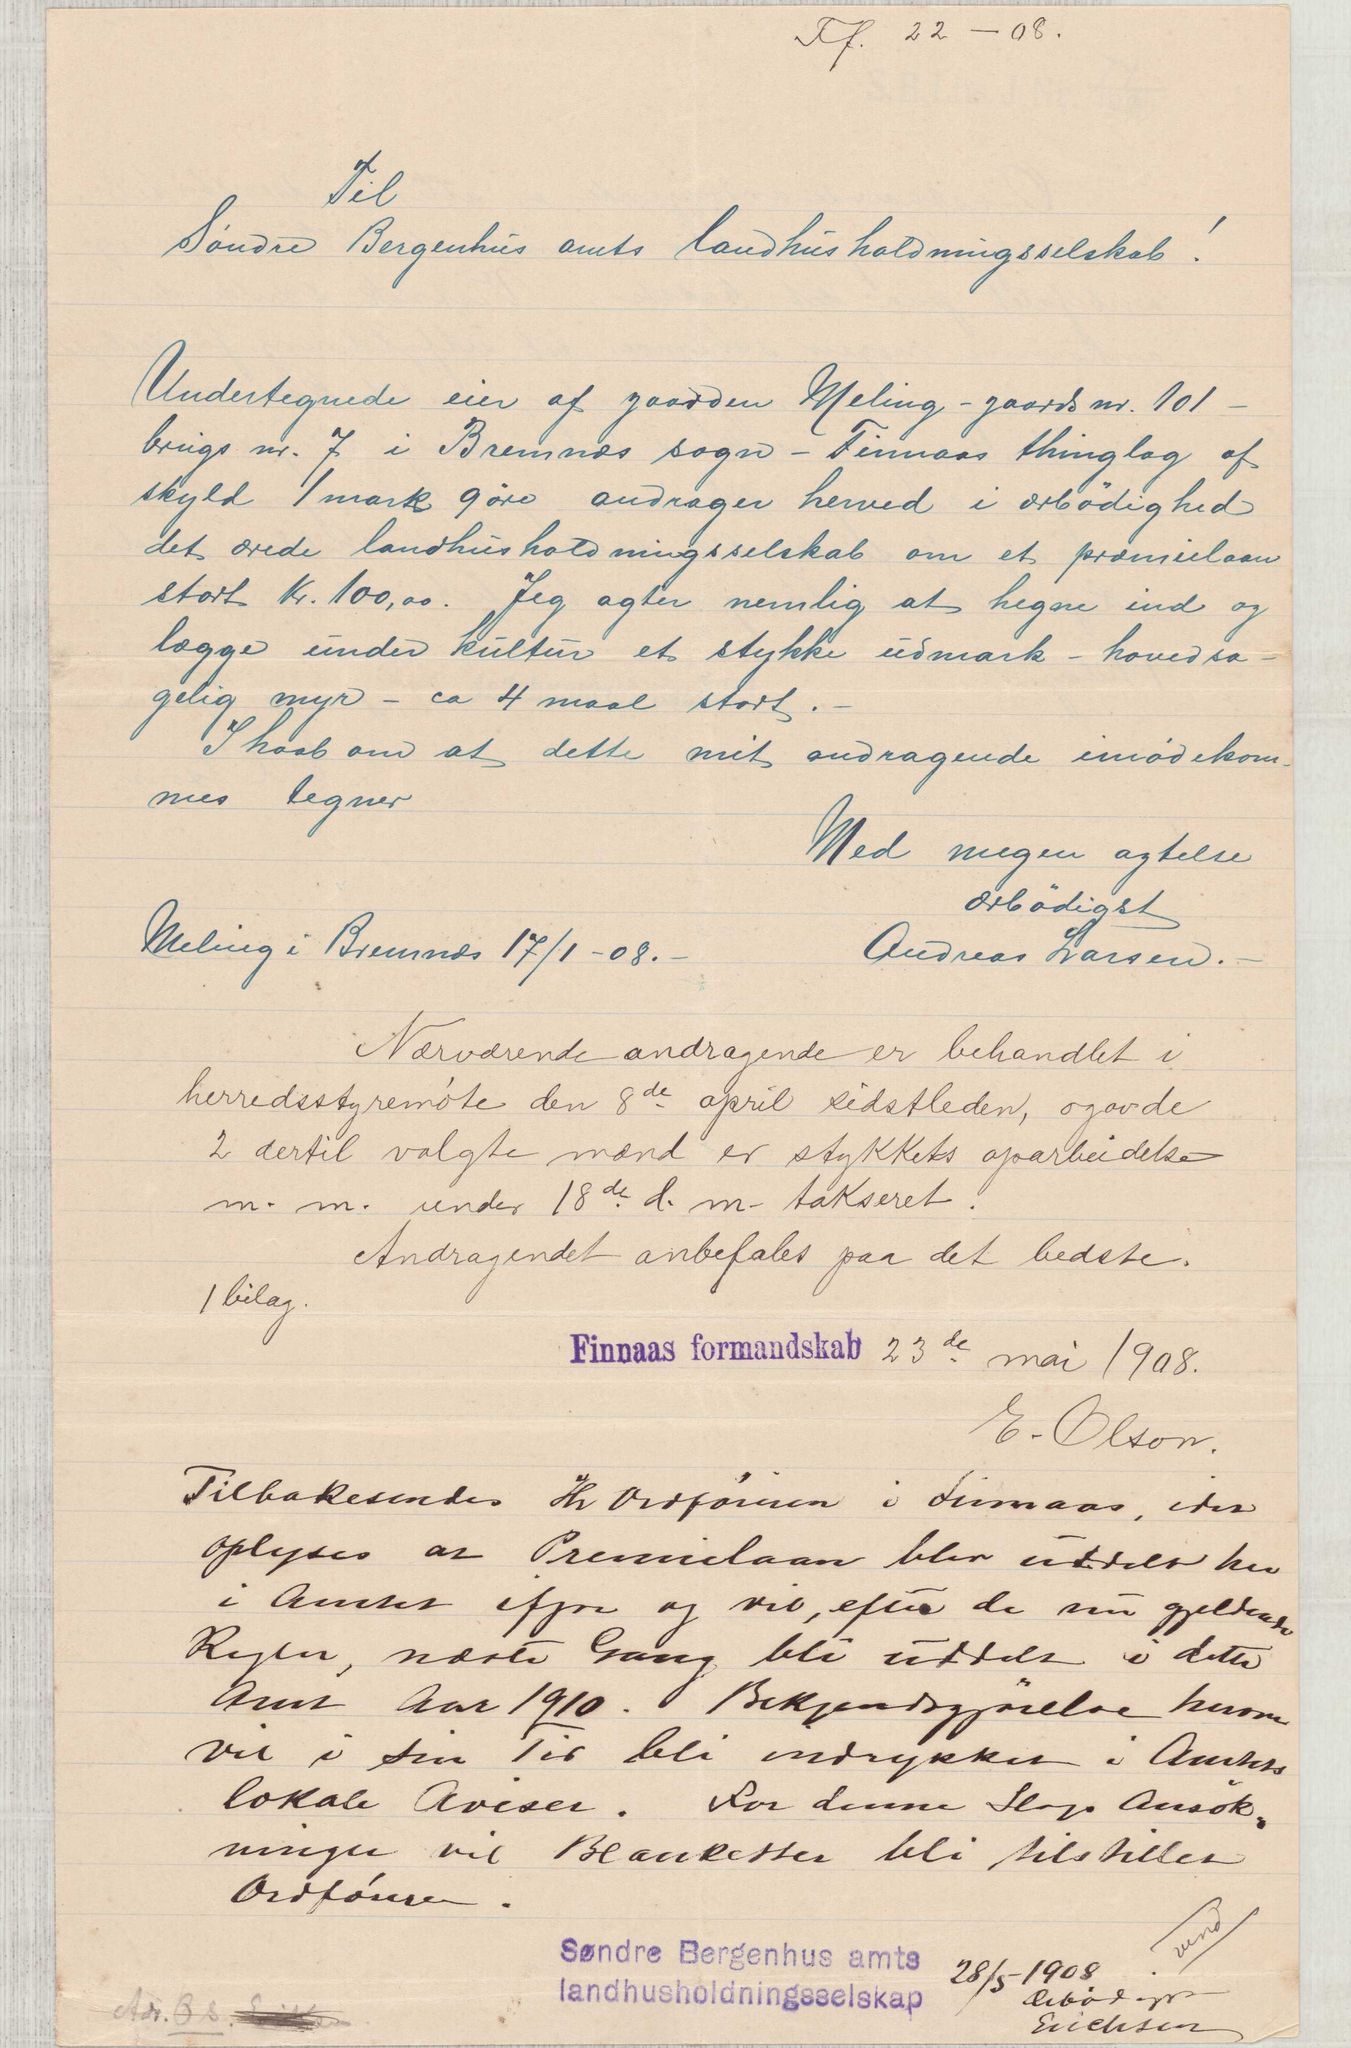 Ff. 22 – 08.
Til
Søndre Bergenhus amts landhusholdningsselskab!
Undertegnede eier af gaarden Meling – gaards nr. 101 –
brugs nr. 7 i Bremnæs sogn – Finnaas thinglag af
skyld 1 mark 9 öre andrager herved i ærbödighed
det ærede landhusholdningsselskab om et præmielaan
stort Kr. 100,00. Jeg agter nemlig at hegne ind og
lægge under kultur et stykke udmark – hovedsa-
gelig myr – ca 4 maal stort. –
I haab om at dette mit andragende imödekom-
mes tegner
Med megen agtelse
ærbödigst
Meling i Bremnæs 17/1 – 08. –
Andreas Larsen. –
Nærværende andragende er behandlet i
herredsstyremöte den 8de april sidstleden, og av de
2 dertil valgte mænd er stykkets oparbeidelse
m. m. under 18de d. m. takseret.
Andragendet anbefales paa det bedste.
1 bilag.
Finnaas formandskab 23de mai 1908.
E. Olson.
Tilbakesendes Hr Ordföreren i Finnaas, idet
oplyses at Premielaan blev uddelt her
i Amtet ifjor og vil, efter de nu gjeldende
Regler, næste Gang bli uddelt i dette
Amt Aar 1910. Bekjendtgjörelse herom
vil i sin Tid bli indrykket i Amtets
lokale Aviser. For denne Slags Ansök-
ninger vil Blanketter bli tilstillet
Ordföreren.
vend
Søndre Bergenhus amts
landhusholdningsselskap
28/5 – 1908
Ærbödigst
Erichsen
Adr.